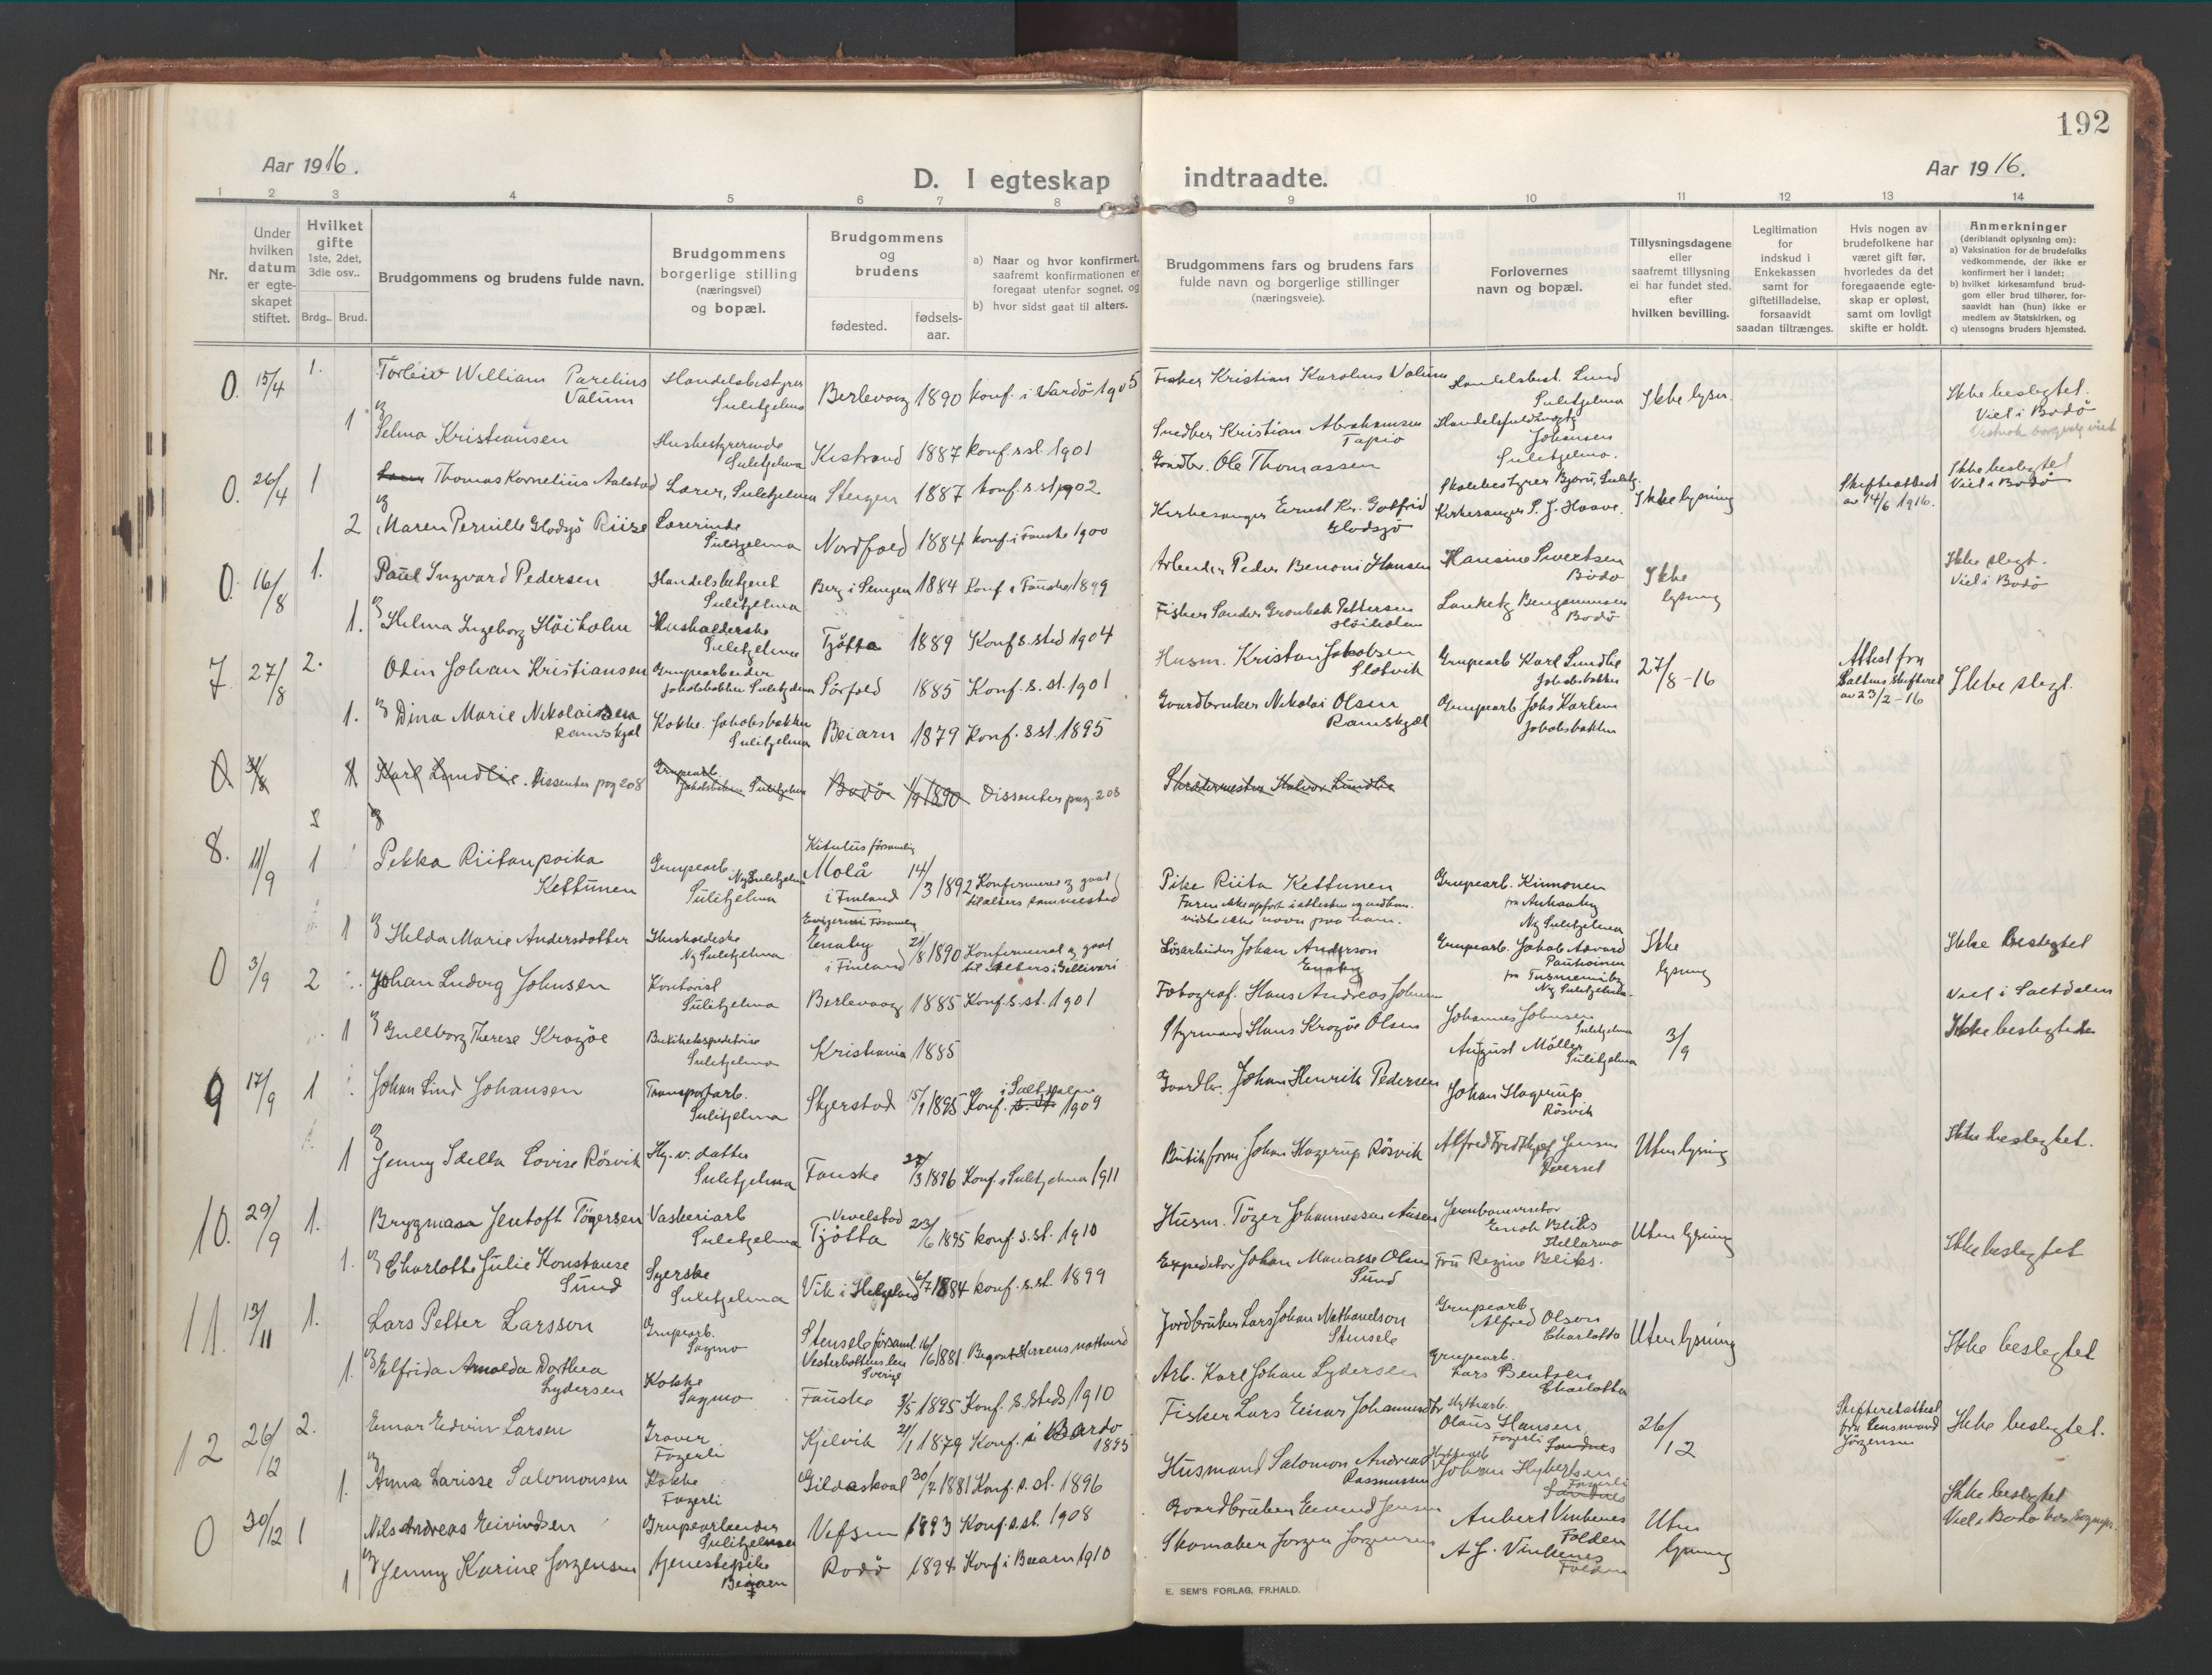 192
Aar 1916.
D. I egteskap indtraadte.
Aar 1916.
1 2 3 4 5 6 7 8 9 10 11 12 13 14
Nr.
Under hvilken datum er egte-skapet stiftet.
Hvilket gifte 1ste, 2det, 3die osv..
Brdg.. Brud.
Brudgommens og brudens fulde navn.
Brudgommens borgerlige stilling (næringsvei) og bopæl.
Brudgommens og brudens
fødested.
fødsels-aar.
a) Naar og hvor konfirmert, saafremt konfirmationen er foregaat utenfor sognet, og
b) hvor sidst gaat til alters.
Brudgommens fars og brudens fars fulde navn og borgerlige stillinger (næringsveie).
Forlovernes navn og bopæl.
Tillysningsdagene eller saafremt tillysning ei har fundet sted, efter hvilken bevilling.
Legitimation for indskud i Enkekassen samt for giftetilladelse, forsaavidt saadan tiltrænges.
Hvis nogen av brudefolkene har været gift før, hvorledes da det foregaaende egte-skap er opløst, samt om lovligt skifte er holdt.
Anmerkninger (deriblandt oplysning om):
a) Vaksination for de brudefolks vedkommende, der ikke er konfirmert her i landet;
b) hvilket kirkesamfund brud-gom eller brud tilhører, for-saavidt han (hun) ikke er medlem av Statskirken, og
c) utensogns bruders hjemsted.
0. 15/4 1. Torleiv William Parelius Valum Handelsbestyrer Sulitjelma Berlevaag 1890 konf. i Vardö 1905 Fisker Kristian Karolius Valum Handelsbest. Lund Sulitjelma Ikke lysn. Ikke beslegtet. Viet i Bodö
1 og Selma Kristiansen Husbestyrerinde Sulitjelma Kistrand 1887 konf. s. st. 1901 Snedker Kristian Abrahamsen Tapio Johansen Sulitjelma.
0. 26/4 1 Thomas Kornelius Aalstad Lærer, Sulitjelma Steigen 1887 konf. s. st. 1902 Gaardbr. Ole Thomassen Skolebestyrer Bjørn, Sulitj. Ikke lysning Skifteattest av 14/6 1916. Ikke beslegtet Viet i Bodö
og
2 Maren Pernille Glodsjö Riise Lærerinde Sulitjelma Nordfold 1884 konf. i Fauske 1900 Kirkesanger Ernst Kr. Gotfrid Glodsjö Kirkesanger S. J. Haave.
0. 16/8 1. Paul Ingvard Pedersen Handelsbetjent Sulitjelma Berg i Senjen 1884 Konf. i Fauske 1899 Arbeider Peder Benoni Hansen Hansine Sivertsen Bodö Ikke lysning Ikke slegt. Viet i Bodö
1. og Helma Ingeborg Höiholm Husholderske Sulitjelma Tjøtta 1889 Konf. s. sted 1904 Fisker Sander Grønbek Pettersen Höiholm Benjaminsen Bodö
7. 27/8 2. Odin Johan Kristiansen Grupearbeider Jakobsbakken Sulitjelma Sørfold 1885 Konf. s. st. 1901 Husm. Kristian Jakobsen Slotvik Grupearb Karl Lundlie Jakobsbakken 27/8-16 Attest fra Saltens skifteret av 23/2-16 Ikke slegt.
1. og Dina Marie Nikolaisen Ramskjel Kokke. Jakobsbakken Sulitjelma Beiarn 1879 Konf. s. st. 1895 Gaardbruker Nikolai Olsen Ramskjel Grupearb Johs Karlsen Jakobsbakken
0 31/8 1 Karl Lundlie. Dissenter pag 208 Grupearb. Jakobsbakken Sulitjelma Bodö 1/9 1890 Dissenter pag. 208 Halvor Lundlie
og
8. 11/9 1 Pekka Riitanpoika Kettunen Grupearb. Ny Sulitjelma Sulitjelma Molå i Finland 14/3 1892 Konfirmeret og gaat til alters sammesteds Pike Riita Kettunen Faren ikke opført i attesten og endhun. vidste ikke navn paa ham. Grupearb. Kinnonen Ny Sulitjelma
1 og Hilda Marie Andersdotter Husholderske Ny Sulitjelma Enaby i Finland 21/8 1890 Konfirmeret og gaat til alters i Gellivari Lösarbeider Johan Anderson Enaby Grupearb. Jakob Ny Sulitjelma. Ikke lysning Ikke beslegtet
0 3/9 2 Johan Ludvig Johnsen Kontorist Sulitjelma Berlevaag 1885 Konf. s. st. 1901 Fotograf. Hans Andreas Johnsen Johannes Johnsen Sulitjelma 3/9 Viet i Saltdalen Ikke beslegtede
1 og Gullborg Therese Kragöe Sulitjelma Kristiania 1885 Styrmand Hans Kragöe Olsen August Möller Sulitjelma
9 17/9 1 Johan Lind Johansen Transportarb. Sulitjelma Skjerstad 15/1 1895 Konf. i Saltdalen 1909 Gaardbr. Johan Henrik Pedersen Johan Hagerup Rösvik Uten lysning Ikke beslegtet.
og
1 Jenny Idella Lovise Rösvik Hj. v. datter Sulitjelma Fauske 27/3 1896 Konf. i Sulitjelma 1911 Butikform. Johan Hagerup Rösvik Alfred Fridthjof Jensen
10. 29/9 1. Brygman Jentoft Tögersen Vaskeriarb Sulitjelma Vevelstad Tjøtta 23/6 1895 konf. s. st. 1910 Husm. Töger Johannessen Enok Bliks Hellarmo Uten lysning Ikke beslegtet
1. og Charlotte Julie Konstanse Sund Syerske Sulitjelma Vik i Helgeland 6/7 1884 konf. s. st. 1899 Expeditør Johan Manasse Olsen Sund Fru Regine Bliks.
11. 13/11 1. Lars Petter Larsson Grupearb. Sagmo Stensele församl. Vesterbottens len Sverige 16/6 1881. Begaat Herrens nattverd Jordbruker Lars Johan Nathanelson Stensele Grupearb Alfred Olson Charlotta Uten lysning Ikke beslegtet
1. og Elfrida Arnolda Dorthea Lydersen Kokke Sagmo Fauske 3/5 1895 Konf. s. steds 1910 Arb. Karl Johan Lydersen Grupearb. Lars Bentsen Charlotta
12 26/12 2. Einar Edvin Larsen Graver Fagerli Kjelvik 21/1 1879 Konf. i Bardo 1895 Fisker Lars Einar Johannes Hytearb. Olaus Hansen Fagerli Sandnes 26/12 Skifteretsattest fra Lensmand Jörgensen Ikke beslegtet.
og
1. Anna Larisse Salomonsen Kokke Fagerli Gildeskaal 30/7 1881 Konf. s. st. 1896 Husmand Salomon Andreas Rasmussen Johan Fagerli Sandnes
0 30/12 1 Nils Andreas Eivindsen Grupearbeider Sulitjelma Vefsn 1893 Konf. s. st. 1908 Gaardbruker Eivind Jensen Anbert Vinkenes Folden Uten lysning Ikke beslegtet Viet i Bodö
1 og Jenny Karine Jorgensen tjenestepike Beiarn Rodö 1894 Konf. i Beiarn 1910 Skomaker Jorgen Jorgensen A. J. Vinkenes Folden
E. SEM'S FORLAG, FR.HALD.